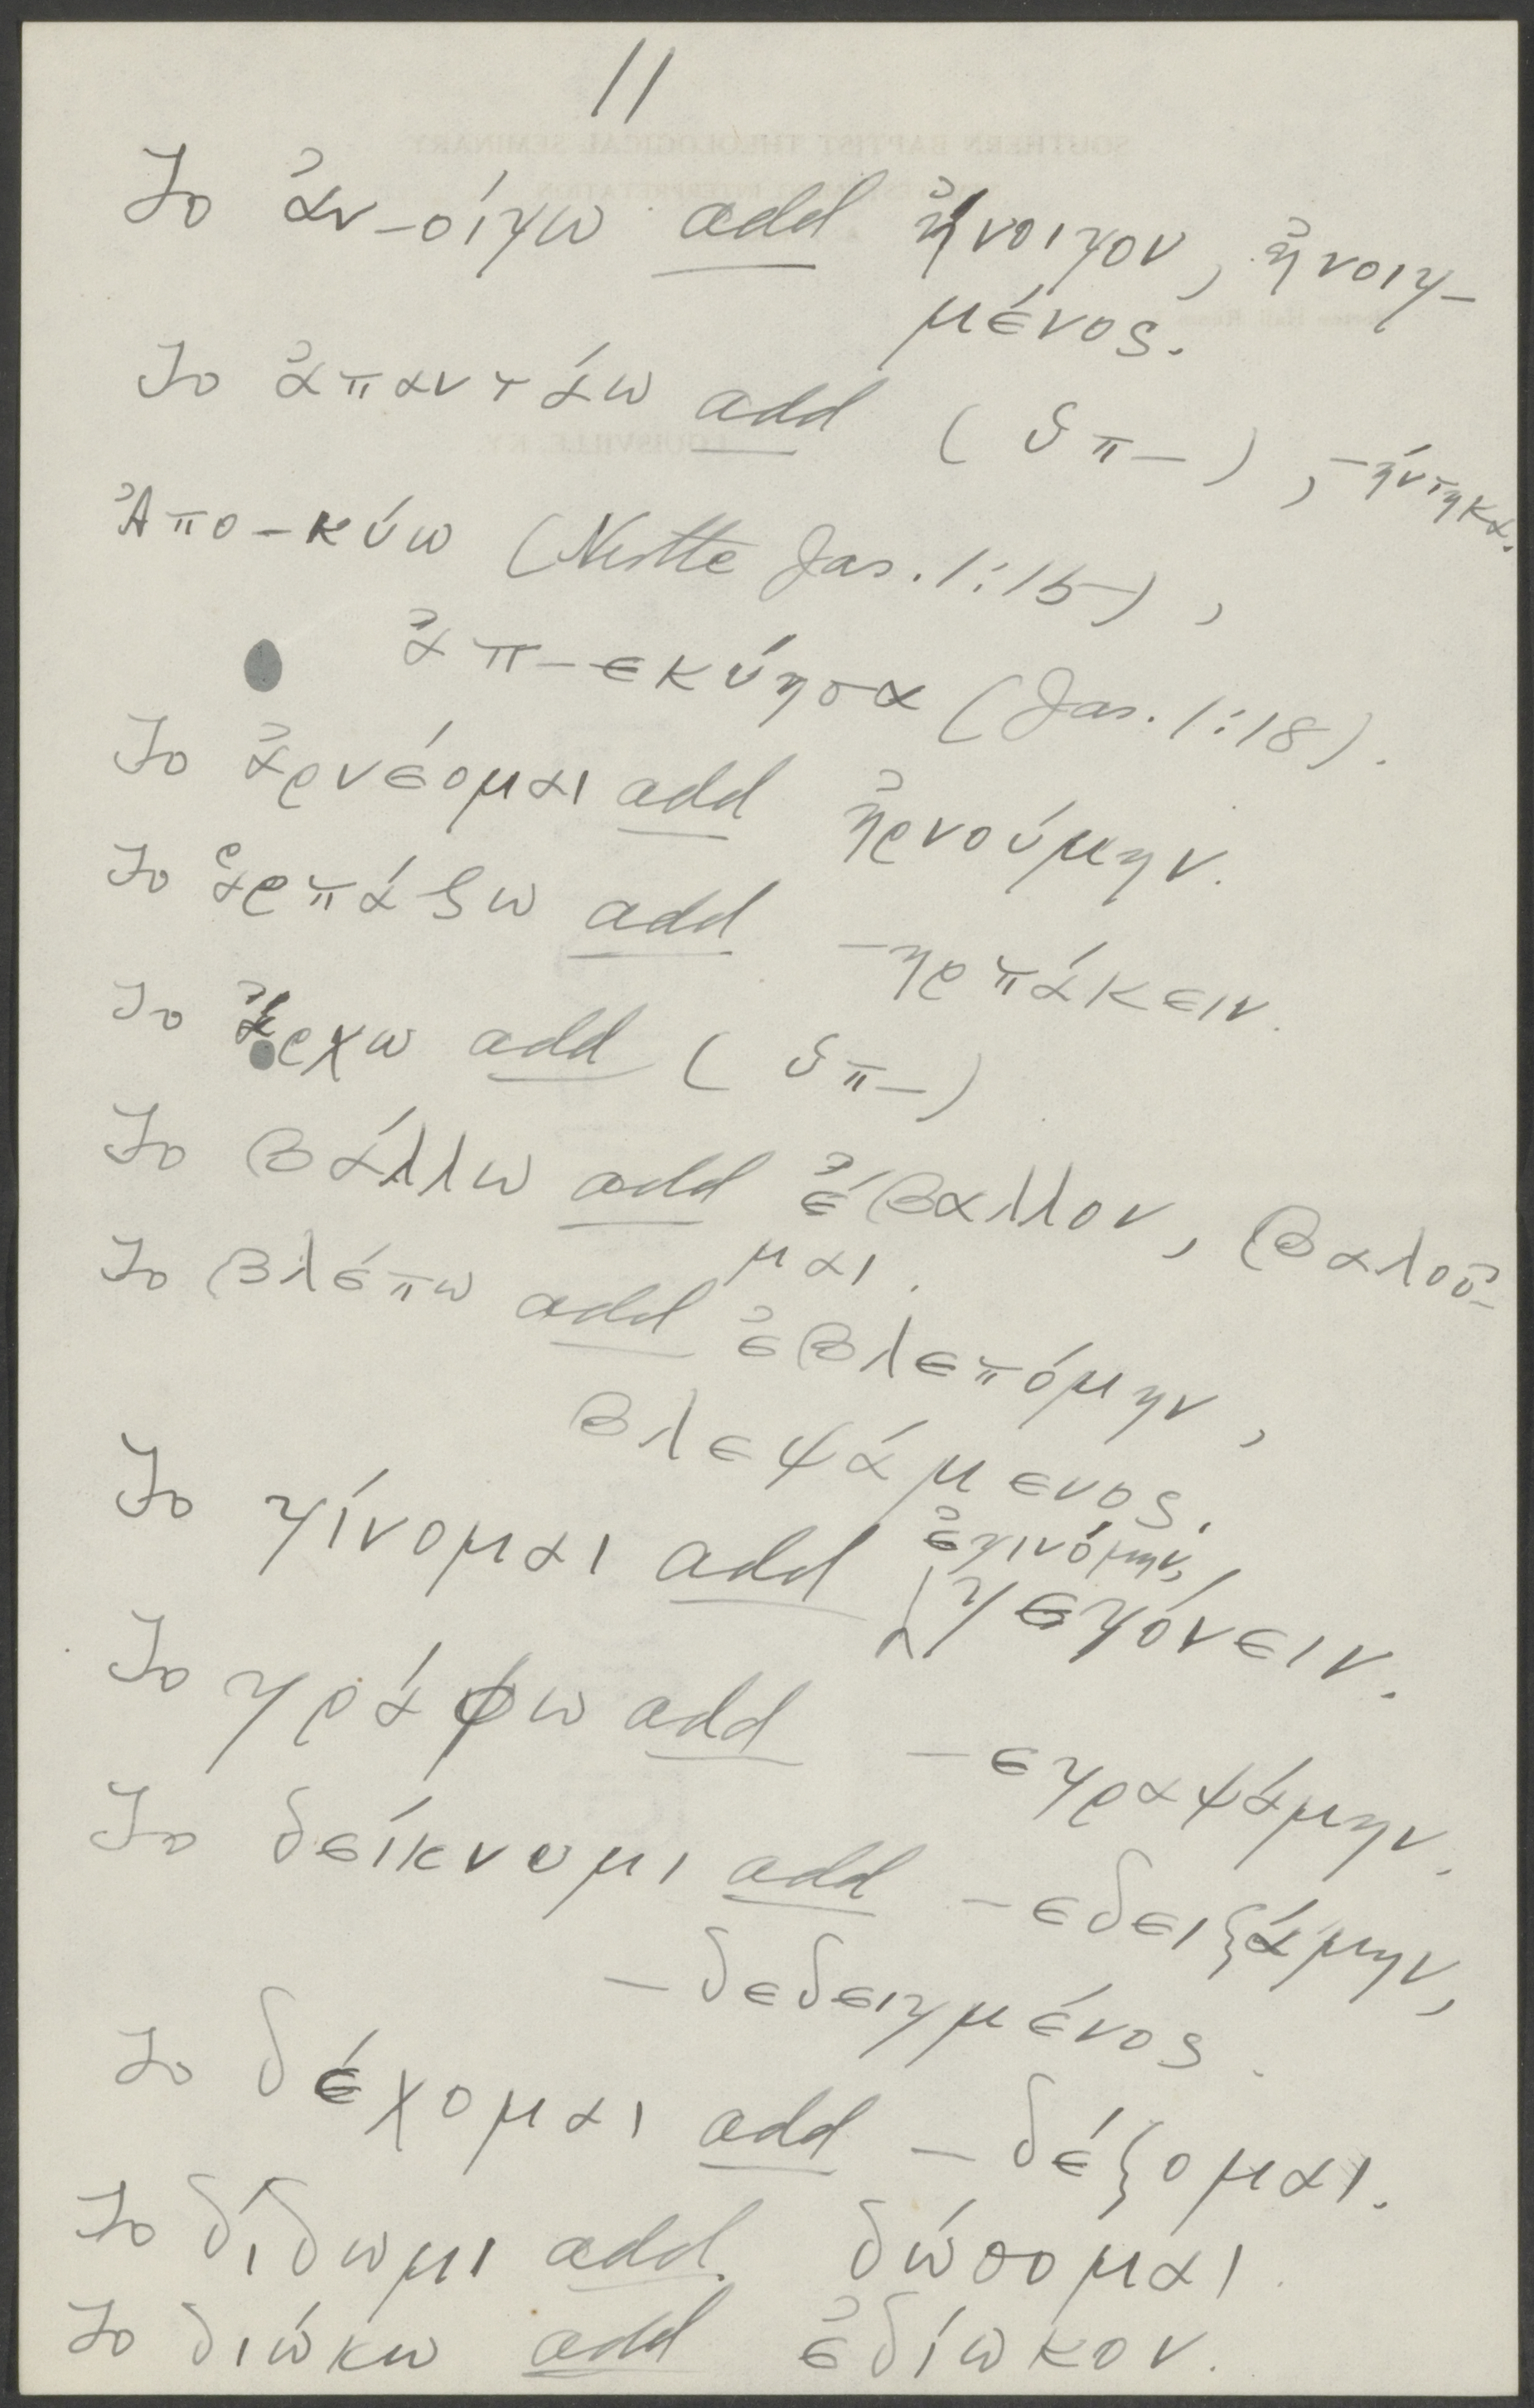 11
To ἀν-οίγω add ἤνοιγον, ἠνοιγ-
μένος.
To ἀπαντάω add (ὑπ-), -ήντηκα.
Ἀπο-κύω (Nestle Jas. 1:15),
ἀπ-εκύησα (Jas. 1:18).
To ἀρνέομαι add ἠρνούμην.
To ἁρπάζω add -ηρπάκειν.
To ἄρχω add (ὑπ-)
To βάλλω add ἔβαλλον, βαλοῦ-
μαι.
To βλέπω add ἐβλεπόμην,
βλεψάμενος.
ἐγινόμην,
To γίνομαι add γεγόνειν.
To γράφω add -εγραψάμην.
To δείκνυμι add -εδειξάμην,
-δεδειγμένος.
To δέχομαι add -δέξομαι.
To δίδωμι add. δώσομαι.
To διώκω add ἐδίωκον.